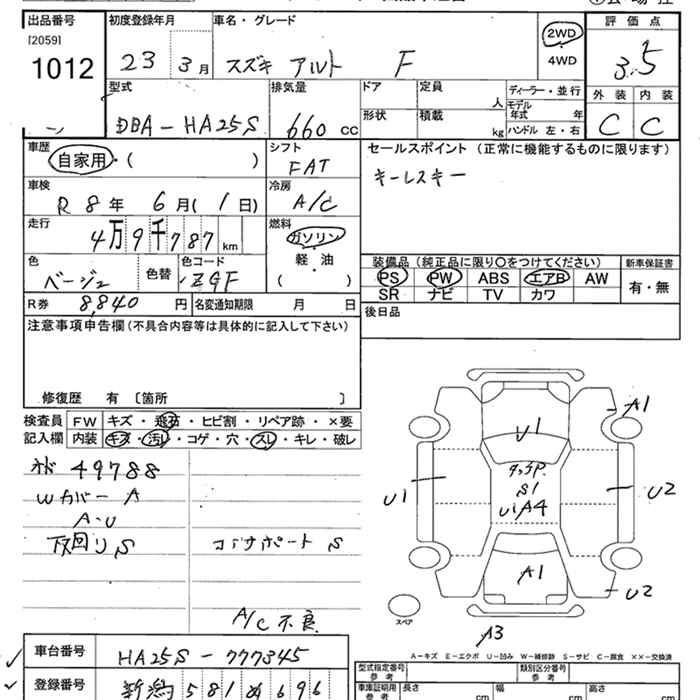 出品番号 初度登録年月 車名・グレード 評価点
[2059]
1012
23 3月 スズキ アルト F 2WD 3.5
4WD
型式 排気量 ドア 定員 ディーラー・並行 外装 内装
人 モデル年式 年
DBA-HA25S 660 cc 形状 積載 kg ハンドル 左・右 C C
車歴 シフト セールスポイント (正常に機能するものに限ります)
自家用・( ) FAT キーレスキー
車検 冷房
R 8年 6月(1日) A/C
走行 燃料
4万9千787km ガソリン
軽・油
( )
装備品 (純正品に限り○をつけてください) 新車保証書
色 色替 色コード
ベージュ ZGF
PS PW ABS エアB AW 有・無
SR ナビ TV カワ
R券 8,840円 名変通知期限 月 日
後日品
注意事項申告欄(不具合内容等は具体的に記入して下さい)
修復歴 有 〔箇所 〕
検査員 FW キズ・飛石・ヒビ割・リペア跡・×要
記入欄 内装 キズ・汚レ・コゲ・穴・スレ・キレ・破レ
49788
Wカバー A
A・U
下回りS コアサポートS
A/C不良
A1
U1
U1 S1 U2
U1A4
A1
U2
スペア
A3
A・キズ E・エクボ U・凹み W・補修跡 S・サビ C・腐食 ××・交換済
車台番号 HA25S-777345
型式指定番号 参考 類別区分番号 参考
登録番号 新潟 581 696
車庫証明用 参考 長さ cm 幅 cm 高さ cm